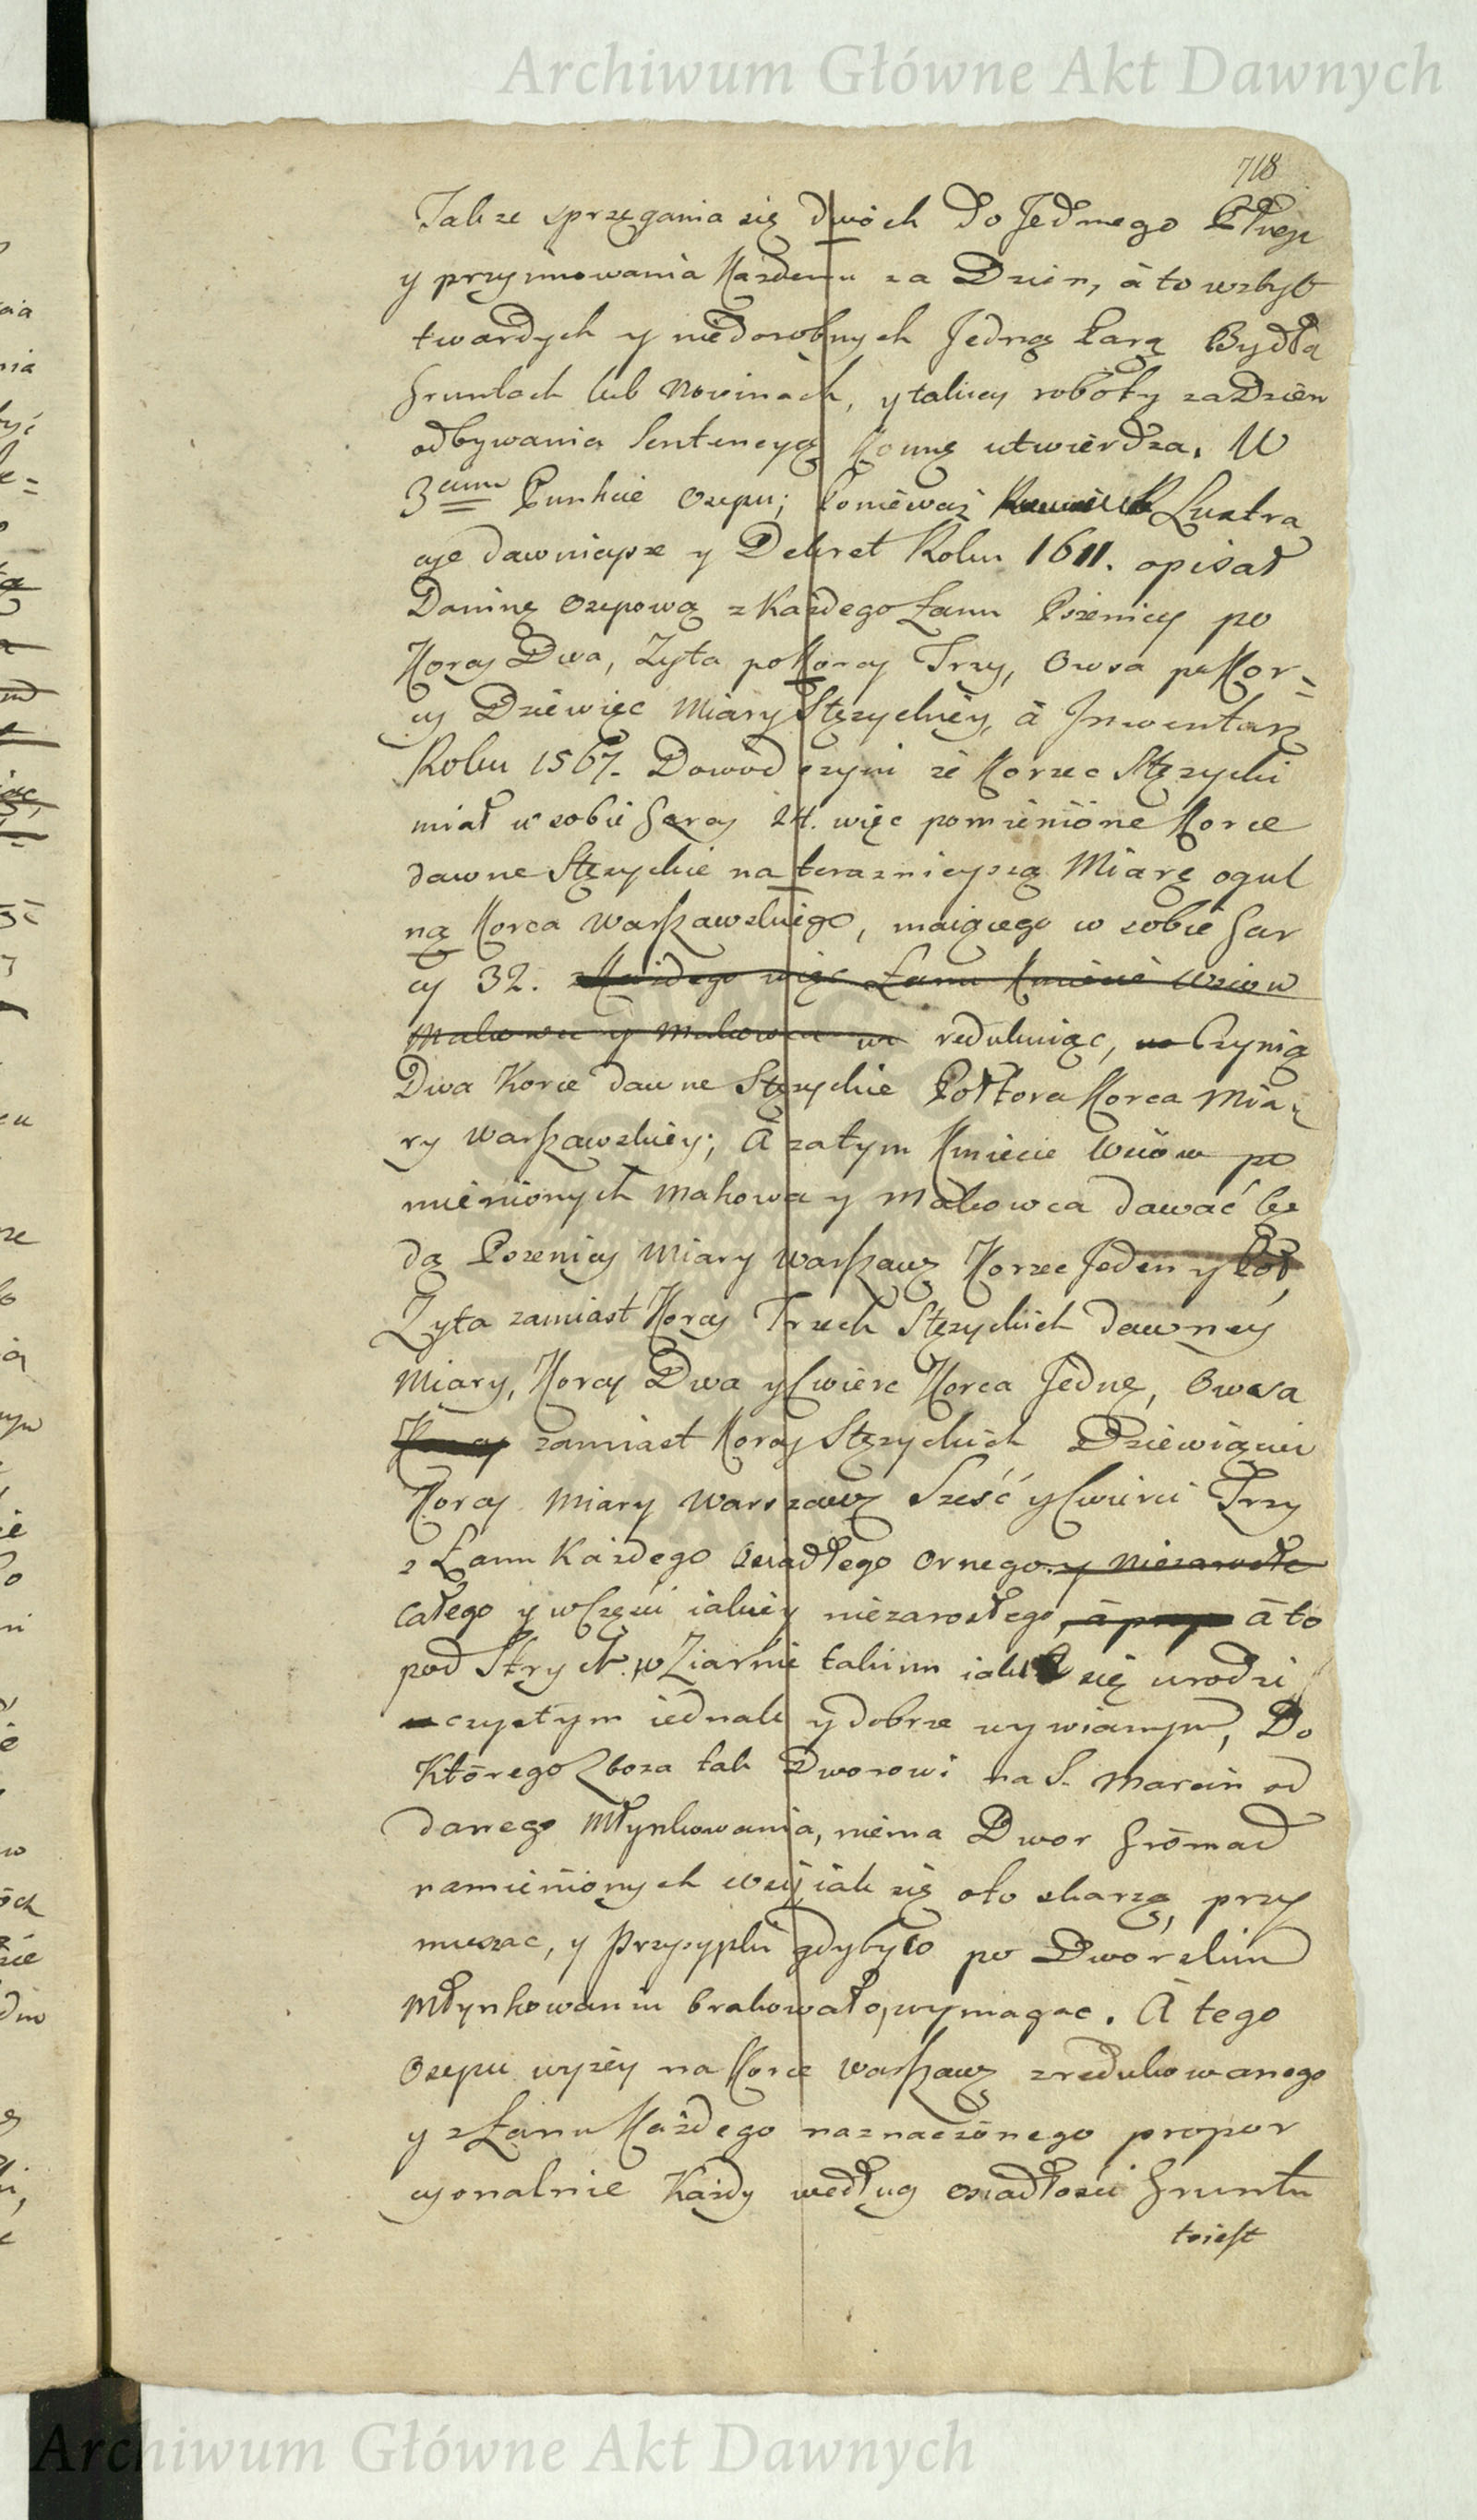 Archiwum Główne Akt Dawnych
718
Takze sprzęgania się dwoch do Jednego Pługa
y przyimowania Kazdemu za Dzien, á to w zbyt
twardych y niedorobnych Jedną Parą Bydła
Gruntach lub Nowinach, y takiey roboty za Dzien
odbywania Sentencyą Komną utwierdza. W
3cim Punkcie Osepu; Poniewaz Lustra
cye dawnieysze y Dekret Roku 1611. opisał
Daninę osepową z Kazdego Łanu Pszenicy po
Korcy Dwa, Zyta po Korcy Trzy, Owsa po Kor=
cy Dziewięc Miary Stęzyckiey, á Inwentarz
Roku 1567. Dowod czyni ze Korzec Stęzycki
miał w sobie Garcy 24. więc pomienione Korce
dawne Stęzyckie na teraznieyszą Miarę ogul
ną Korca Warszawskiego, maiącego w sobie Gar
cy 32. z Kazdego więc Łanu Kmiecie Wsiow
Makowa y Makowca redukuiąc, Czynią
Dwa Korce dawne Stęzyckie Połtora Korca Mia
ry Warszawskiey; A zatym Kmiecie Wsiow po
mienionych Makowa y Makowca dawać bę
dą Pszenicy Miary Warszaws Korzec Jeden y Poł,
Zyta zamiast Korcy Trzech Stęzyckich dawney
Miary, Korcy Dwa y Cwierc Korca Jednę, Owsa
Korcy zamiast Korcy Stęzyckich Dziewiąciu
Korcy Miary Warszaws Sześć y Cwierci Trzy
z Łanu Kazdego Osiadłego ornego y niezarosłe
całego y w Częsci iakiey niezarosłego, á to
pod Strych. w Ziarnie takim iakie się urodzi
czystym iednak y dobrze wywianym, Do
Ktorego Zboza tak Dworowi na S. Marcin od
danego Młynkowania, niema Dwor Gromad
namienionych wsiy iak się oto skarzą, przy
muszac, y Przysypki gdyby co po Dworskim
Młynkowaniu brakowało, wymagac. A tego
Osepu wyzey na Korce Warszaws zredukowanego
y z Łanu Kazdego naznaczonego propor
cyonalnie Kazdy według osiadłosci Gruntu
toiest
Archiwum Główne Akt Dawnych